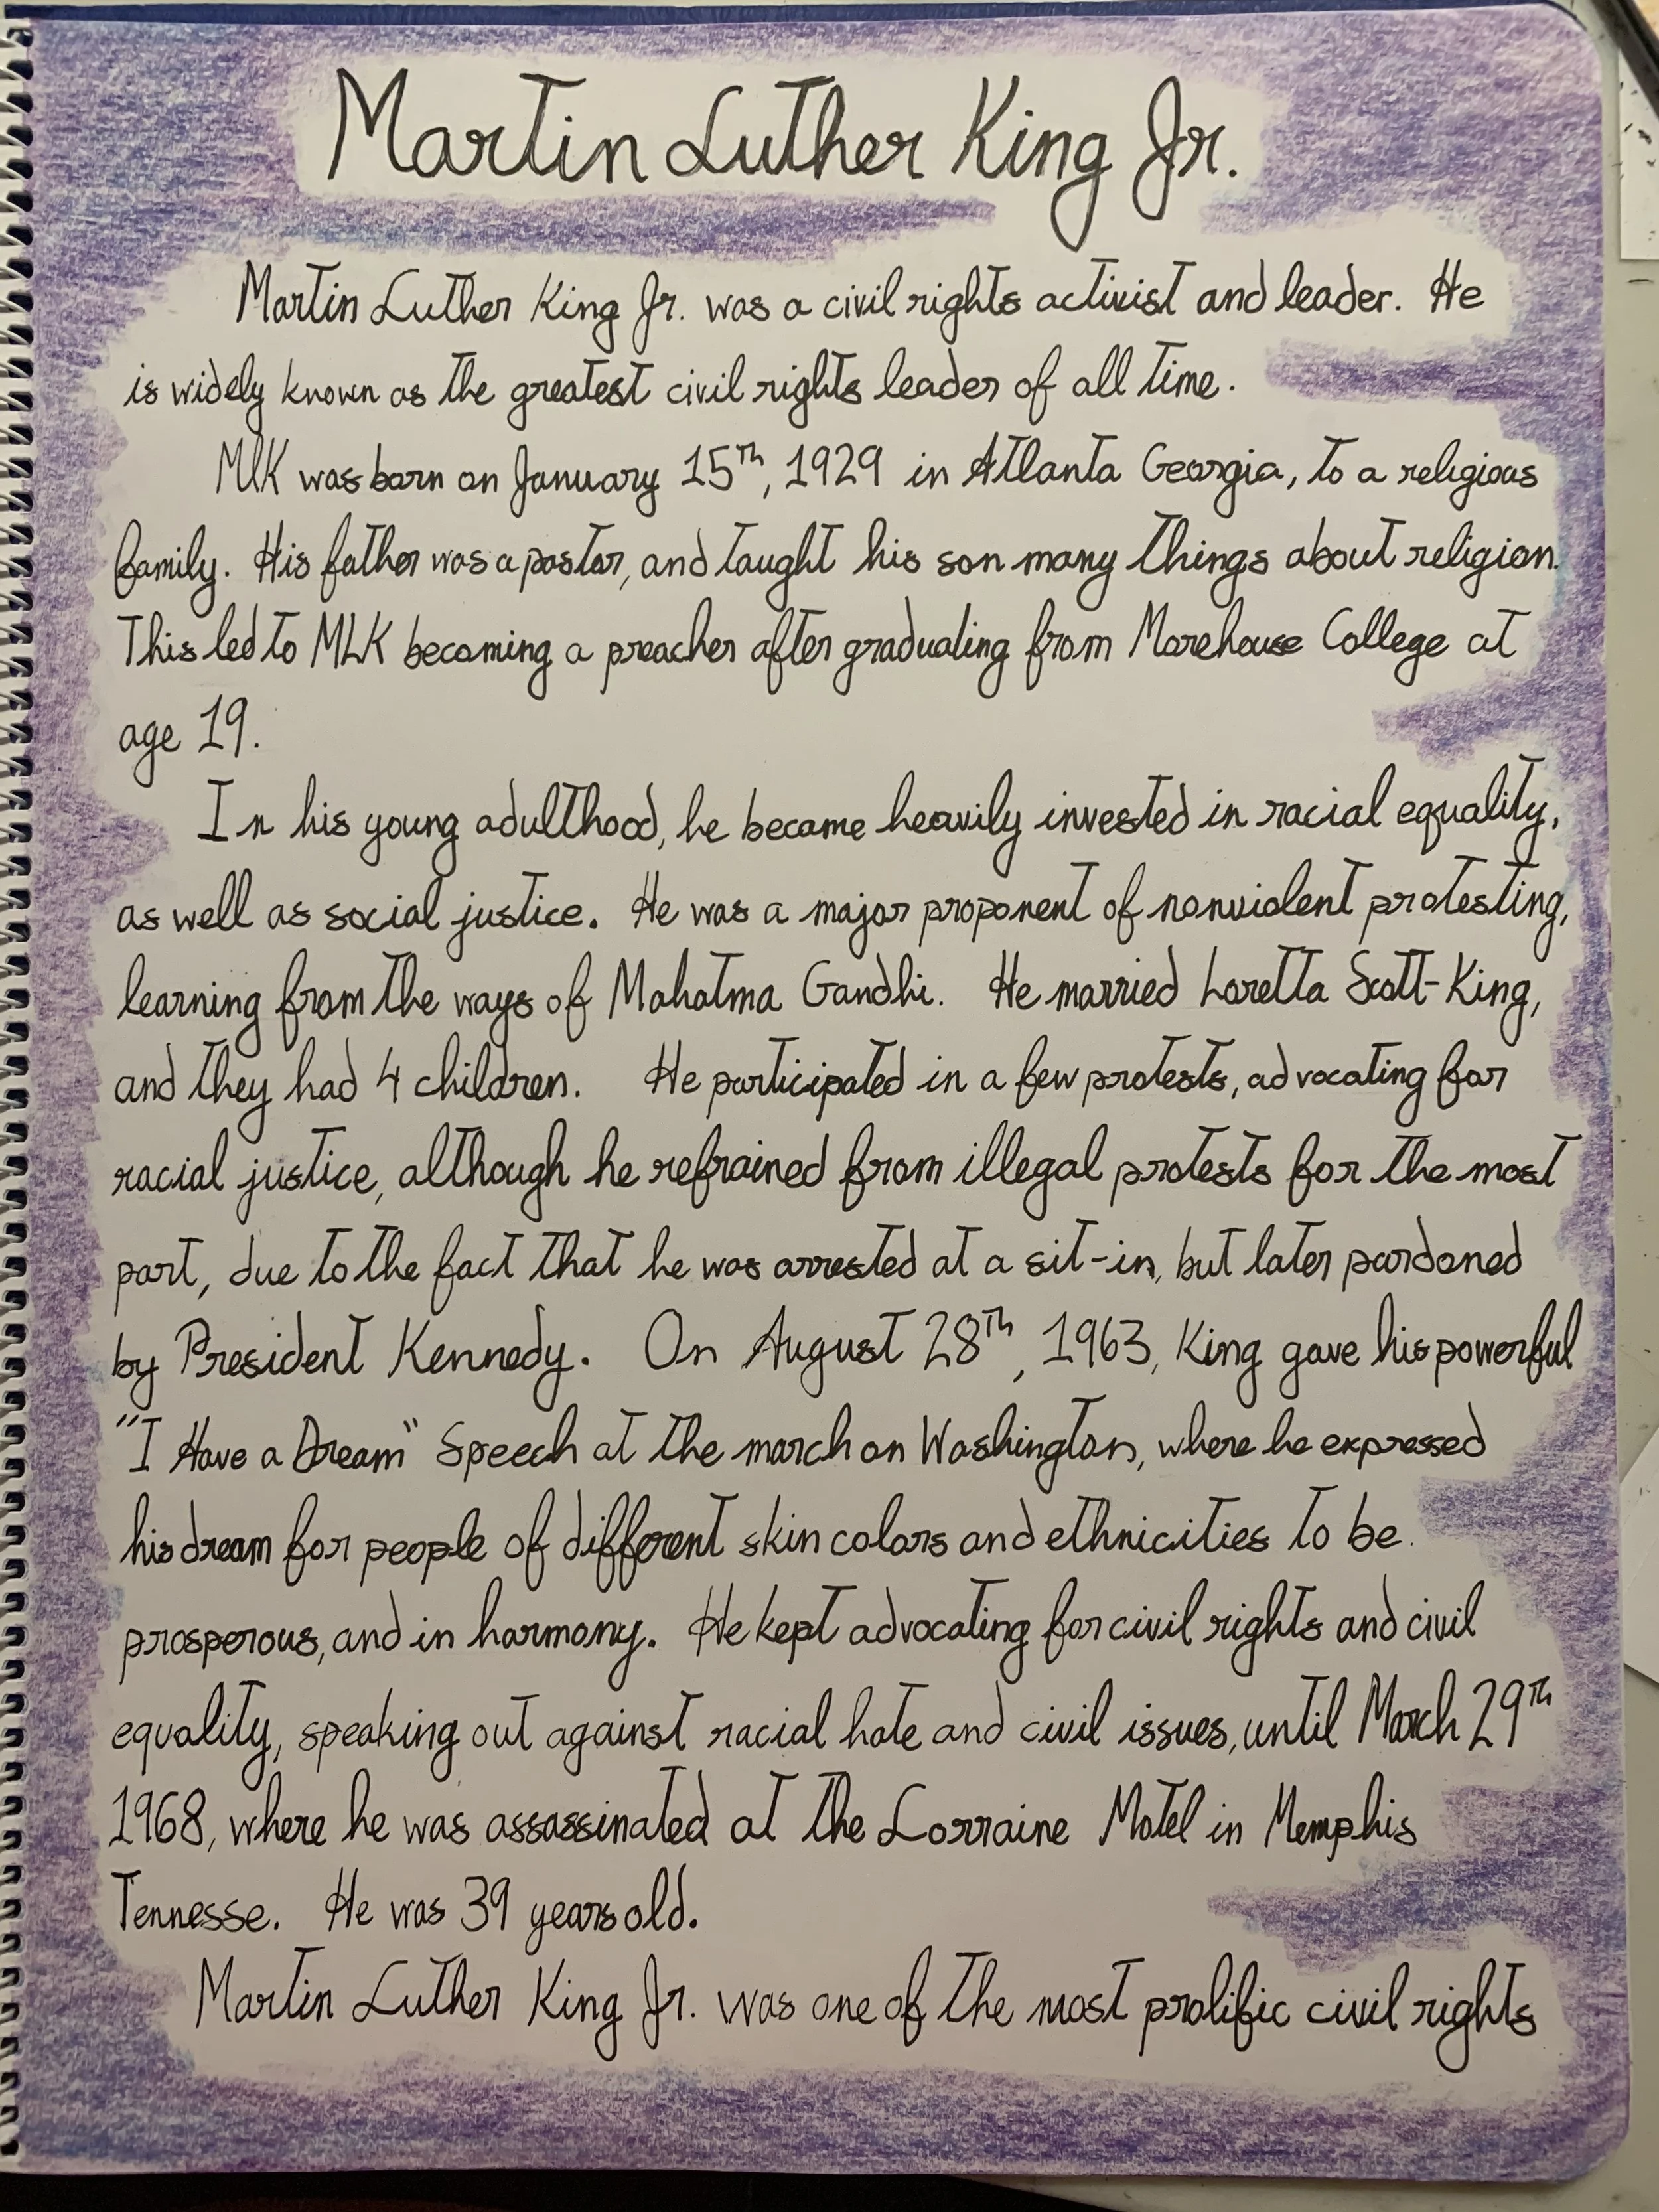 Martin Luther King Jr.
Martin Luther King Jr. was a civil rights activist and leader. He
is widely known as the greatest civil rights leader of all time.
MLK was born on January 15th, 1929 in Atlanta Georgia, to a religious
family. His father was a pastor, and taught his son many things about religion.
This led to MLK becoming a preacher after graduating from Morehouse College at
age 19.
In his young adulthood, he became heavily invested in racial equality,
as well as social justice. He was a major proponent of nonviolent protesting,
learning from the ways of Mahatma Gandhi. He married Loretta Scott-King,
and they had 4 children. He participated in a few protests, advocating for
racial justice, although he refrained from illegal protests for the most
part, due to the fact that he was arrested at a sit-in, but later pardoned
by President Kennedy. On August 28th, 1963, King gave his powerful
"I Have a Dream" Speech at the march on Washington, where he expressed
his dream for people of different skin colors and ethnicities to be
prosperous, and in harmony. He kept advocating for civil rights and civil
equality, speaking out against racial hate and civil issues, until March 29th
1968, where he was assassinated at the Lorraine Motel in Memphis
Tennesse. He was 39 years old.
Martin Luther King Jr. was one of the most prolific civil rights